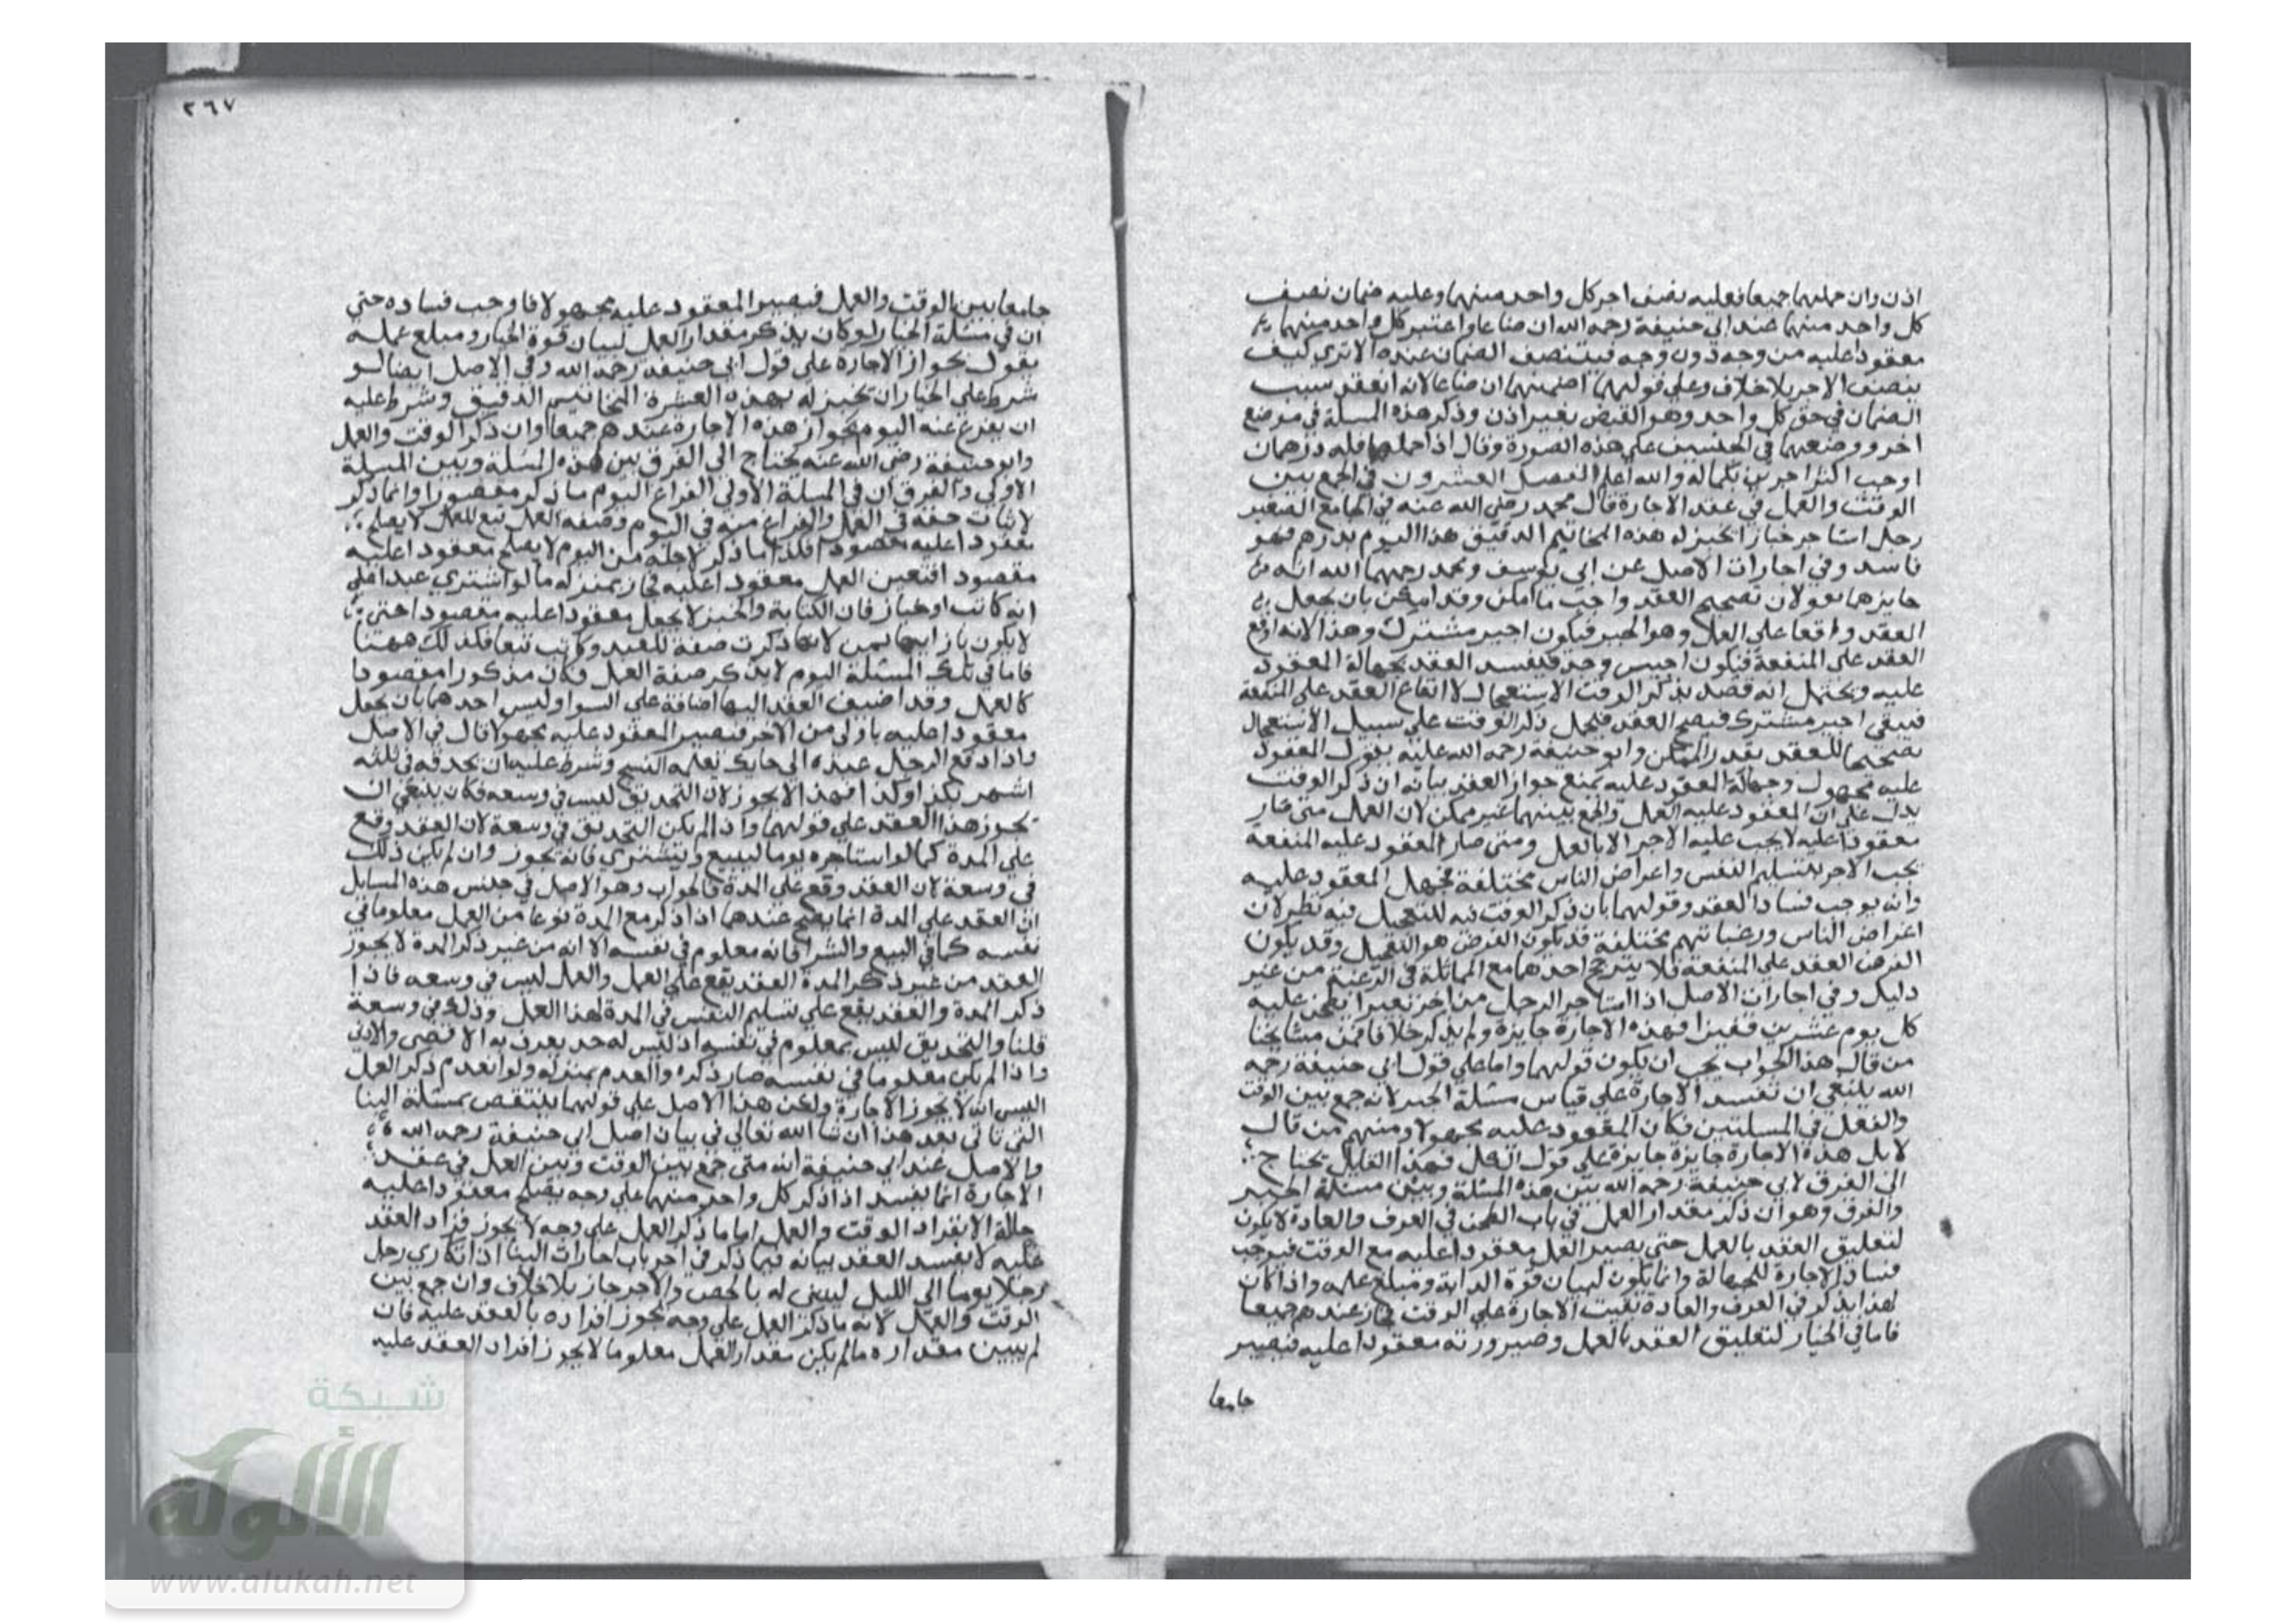 اذن وان حملهما جميعا فعليه نصف اجر كل واحد منهما وعليه ضمان نصف
كل واحد منهما عند ابي حنيفة رحمه الله ان ضاعا واعتبر كل واحد منهما
معقودا عليه من وجه دون وجه فيتنصف الضمان عنده الا تري كيف
ينصف الاجر بلا خلاف وعلي قولهما ضمنهما ان ضاعا لانه انعقد سبب
الضمان في حق كل واحد وهو القبض بغير اذن وذكر هذه المسلة في موضع
اخر ووضعها في الجنسين علي هذه الصورة وقال اذا حملهما فله درهمان
اوجب اكثر اجرين بكماله والله اعلم الفصل العشرون في الجمع بين
الوقت والعمل في عقد الاجارة قال محمد رضي الله عنه في الجامع الصغير
رجل استاجر خبازا ليخبز له هذه المخاتيم الدقيق هذا اليوم بدرهم فهو
فاسد وفي اجارات الاصل عن ابي يوسف ومحمد رحمهما الله انه
جايز هما يقولان تصحيح العقد واجب ما امكن وقد امكن بان يجعل
العقد واقعا علي العمل وهو الخبز فيكون اجير مشترك وهذا لانه اوقع
العقد علي المنفعة فيكون اجير وحد فيفسد العقد بجهالة المعقود
عليه ويحتمل انه قصد بذكر الوقت الاستعجال لا ايقاع العقد علي المنفعة
فيبقي اجير مشترك فيصح العقد فيحمل ذكر الوقت علي سبيل الاستعجال
تصحيحا للعقد بقدر الممكن وابو حنيفة رحمه الله عليه يقول المعقود
عليه مجهول وجهالة المعقود عليه يمنع جواز العقد بيانه ان ذكر الوقت
يدل علي ان المعقود عليه العمل والجمع بينهما غير ممكن لان العمل متي صار
معقودا عليه لا يجب عليه الاجر الا بالعمل ومتي صار المعقود عليه المنفعة
يجب الاجر بتسليم النفس واعراض الناس مختلفة فجهل المعقود عليه
وانه يوجب فساد العقد وقولهما بان ذكر الوقت فيه للتعجيل فيه نظر لان
اغراض الناس ورغباتهم مختلفة قد يكون الغرض هو التعجيل وقد يكون
الغرض العقد علي المنفعة فلا يترجح احدهما مع المماثلة في الرغبة من غير
دليل وفي اجارات الاصل اذا استاجر الرجل من اخر بعيرا يطحن عليه
كل يوم عشرين قفيزا فهذه الاجارة جايزة ولم يذكر خلافا فمن مشايخنا
من قال هذا الجواب يجب ان يكون قولهما واما علي قول ابي حنيفة رحمه
الله ينبغي ان تفسد الاجارة علي قياس مسئلة الخبز لانه جمع بين الوقت
والفعل في المسلتين فكان المعقود عليه مجهولا ومنهم من قال
لا بل هذه الاجارة جايزة جايزة علي قول الكل فهذا القايل يحتاج
الي الفرق لابي حنيفة رحمه الله بين هذه المسئلة وبين مسئلة الخبز
والفرق وهو ان ذكر مقدار العمل في باب الطحن في العرف والعادة لا يكون
لتعليق العقد بالعمل حتي يصير العمل معقودا عليه مع الوقت فيوجب
فساد الاجارة للجهالة وانما يكون لبيان قوة الدابة ومبلغ عمله واذا كان
هذا يذكر في العرف والعادة بقيت الاجارة علي الوقت فجاز عندهم جميعا
فاما في الخباز لتعليق العقد بالعمل وصيرورته معقودا عليه فيصير
جامعا
٢٦٧
جامعا بين الوقت والعمل فيصير المعقود عليه مجهولا فاوجب فساده حتي
ان في مسئلة الخباز لو كان يذكر مقدار العمل لبيان قوة الخباز ومبلغ عمله
يقول بجواز الاجارة علي قول ابي حنيفة رحمه الله وفي الاصل ايضا لو
شرط علي الخباز ان يخبز له بهذه العشرة المخاتيم الدقيق وشرط عليه
ان يفرغ عنه اليوم يجوز هذه الاجارة عندهم جميعا وان ذكر الوقت والعمل
وابو حنيفة رضي الله عنه يحتاج الي الفرق بين هذه المسئلة وبين المسلة
الاولي والفرق ان في المسلة الاولي الفراغ اليوم ما ذكر مقصورا وانما ذكر
لاثبات صفة في العمل والفراغ منه في اليوم وصفة العمل تبع للعمل لا يصلح
معقودا عليه مقصودا فلذا ما ذكر لاجله من اليوم لا يصلح معقودا عليه
مقصودا فتعين العمل معقودا عليه فجاز بمنزله ما لو اشتري عبدا علي
انه كاتب او خباز فان الكتابة والخبز لا يجعل معقودا عليه مقصودا حتي
لا يكون بازايها ثمن لانها ذكرت صفة للعبد وكانت تبعا فكذلك ههنا
فاما في تلك المسئلة اليوم لا يذكر صفة العمل فكان مذكورا مقصودا
كالعمل وقد اضيف العقد اليها اضافة علي السوا وليس احدهما بان يجعل
معقودا عليه باولي من الاخر فيصير المعقود عليه مجهولا قال في الاصل
واذا دفع الرجل عبده الي حايك يعلمه النسج وشرط عليه ان يحذقه في ثلثه
اشهر بكذا وكذا فهذا لا يجوز لان التحذيق ليس في وسعه فكان ينبغي ان
يجوز هذا العقد علي قولهما واذا لم يكن التحذيق في وسعة لان العقد وقع
علي المدة كما لو استاجره يوما ليبيع ويشتري فانه يجوز وان لم يكن ذلك
في وسعة لان العقد وقع علي المدة فالجواب وهو الاصل في جنس هذه المسايل
ان العقد علي المدة انما يصح عندهما اذا ذكر مع المدة نوعا من العمل معلوما في
نفسه كما في البيع والشرا فانه معلوم في نفسه الا انه من غير ذكر المدة لا يجوز
العقد من غير ذكر المدة العقد يقع علي العمل والعمل ليس في وسعه فاذا
ذكر المدة والعقد يقع علي تسليم النفس في المدة لهذا العمل وذلك في وسعة
قلنا والتحذيق ليس بمعلوم في نفسه اذ ليس له حد يعرف به الاقصي والادني
واذا لم يكن معلوما في نفسه صار ذكره والعدم بمنزله ولو انعدم ذكر العمل
اليس انه لا يجوز الاجارة ولكن هذا الاصل علي قولهما ينتقض بمسئلة البنا
التي تاتي بعد هذا ان شا الله تعالي في بيان اصل ابي حنيفة رحمه الله
والاصل عند ابي حنيفة انه متي جمع بين الوقت وبين العمل في عقد
الاجارة انما يفسد اذا ذكر كل واحد منهما علي وجه يصلح معقودا عليه
حالة الانفراد الوقت والعمل اما ما ذكر العمل علي وجه لا يجوز افراد العقد
عليه لا يفسد العقد بيانه فيما ذكر في اخر باب اجارات البنا اذا تكاري رجل
رجلا يوما الي الليل ليبني له بالجص والاجر جاز بلا خلاف وان جمع بين
الوقت والعمل لانه ما ذكر العمل علي وجه يجوز افراده بالعقد عليه فان
لم يبين مقداره ما لم يكن مقدار العمل معلوما لا يجوز افراد العقد عليه
شبكة
الألوكة
www.alukah.net